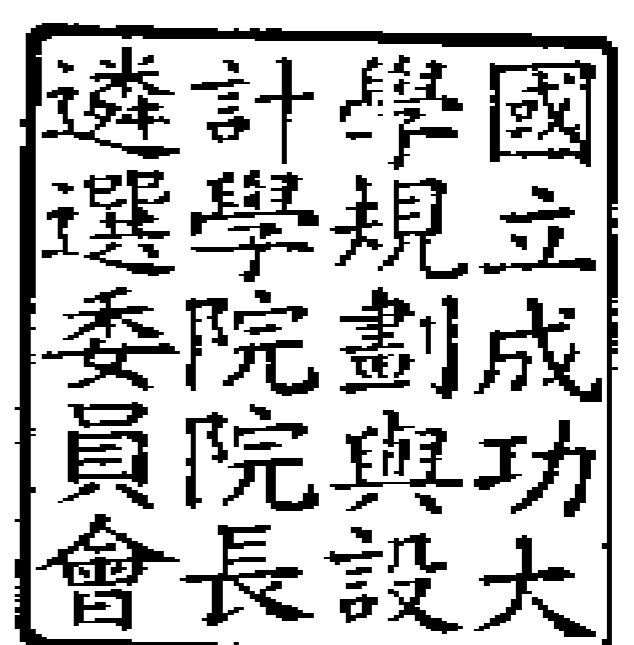 國立成功大
學規劃與設
計學院院長
遴選委員會